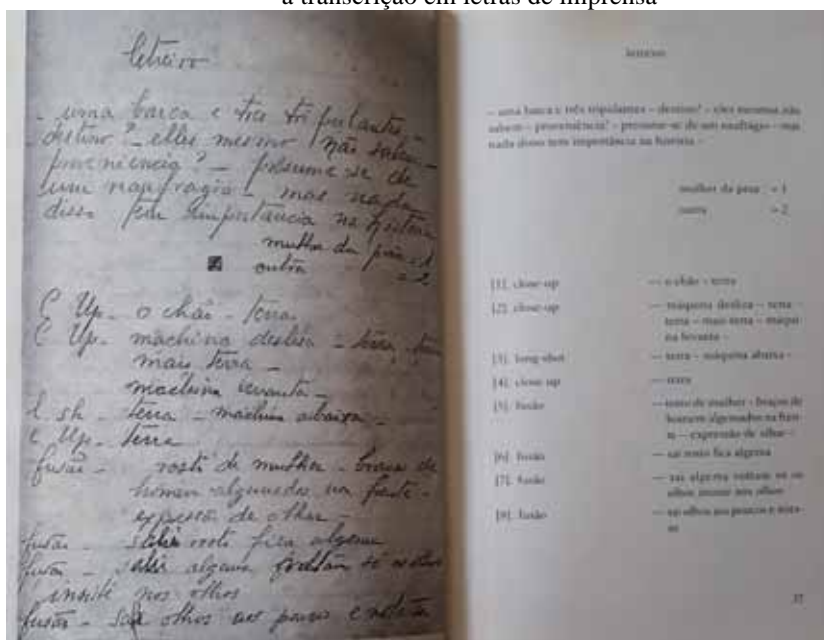 a transcrição em letras de imprensa
letreiro
- uma barca e tres tripulantes -
destino? - elles mesmo não sabem -
proveniencia? - presume se de
um naufragio - mas nada
disso tem importancia na historia
mulher da prôa = 1
outra = 2
C Up - o chão - terra
C Up - machina deslisa - terra, terra
mais terra -
machina levanta -
l. sh - terra - machina abaixa -
C Up - terra
fusão - rosto de mulher - braços de
homem algemados na frente -
expressão de olhar -
fusão - rosto fica algema
fusão - algema voltam só os olhos
nos olhos
fusão - sae olhos aos poucos e
letreiro
— uma barca e três tripulantes – destino? – eles mesmos não
sabem – proveniência? – presume-se de um naufrágio – mas
nada disso tem importância na história –
mulher da proa = 1
outra = 2
[1]. close-up — o chão – terra
[2]. close-up — máquina desliza – terra –
terra – mais terra – máqui-
na levanta –
[3]. long-shot — terra – máquina abaixa –
[4]. close-up — terra
[5]. fusão — rosto de mulher – braços de
homem algemados na fren-
te – expressão de olhar –
[6]. fusão — sai rosto fica algema
[7]. fusão — sai algema voltam só os
olhos nos olhos
fusão — sai olhos aos poucos e
37